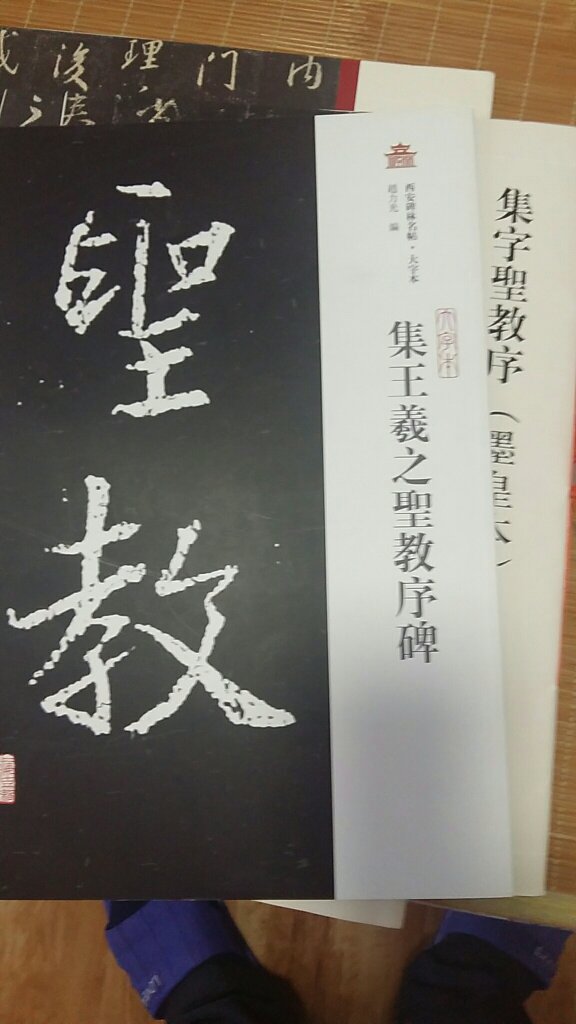 聖教
西安碑林名帖·大字本
趙力光 編
大字本
集王羲之聖教序碑
集字聖教序(墨皇本)
内
門
理
後